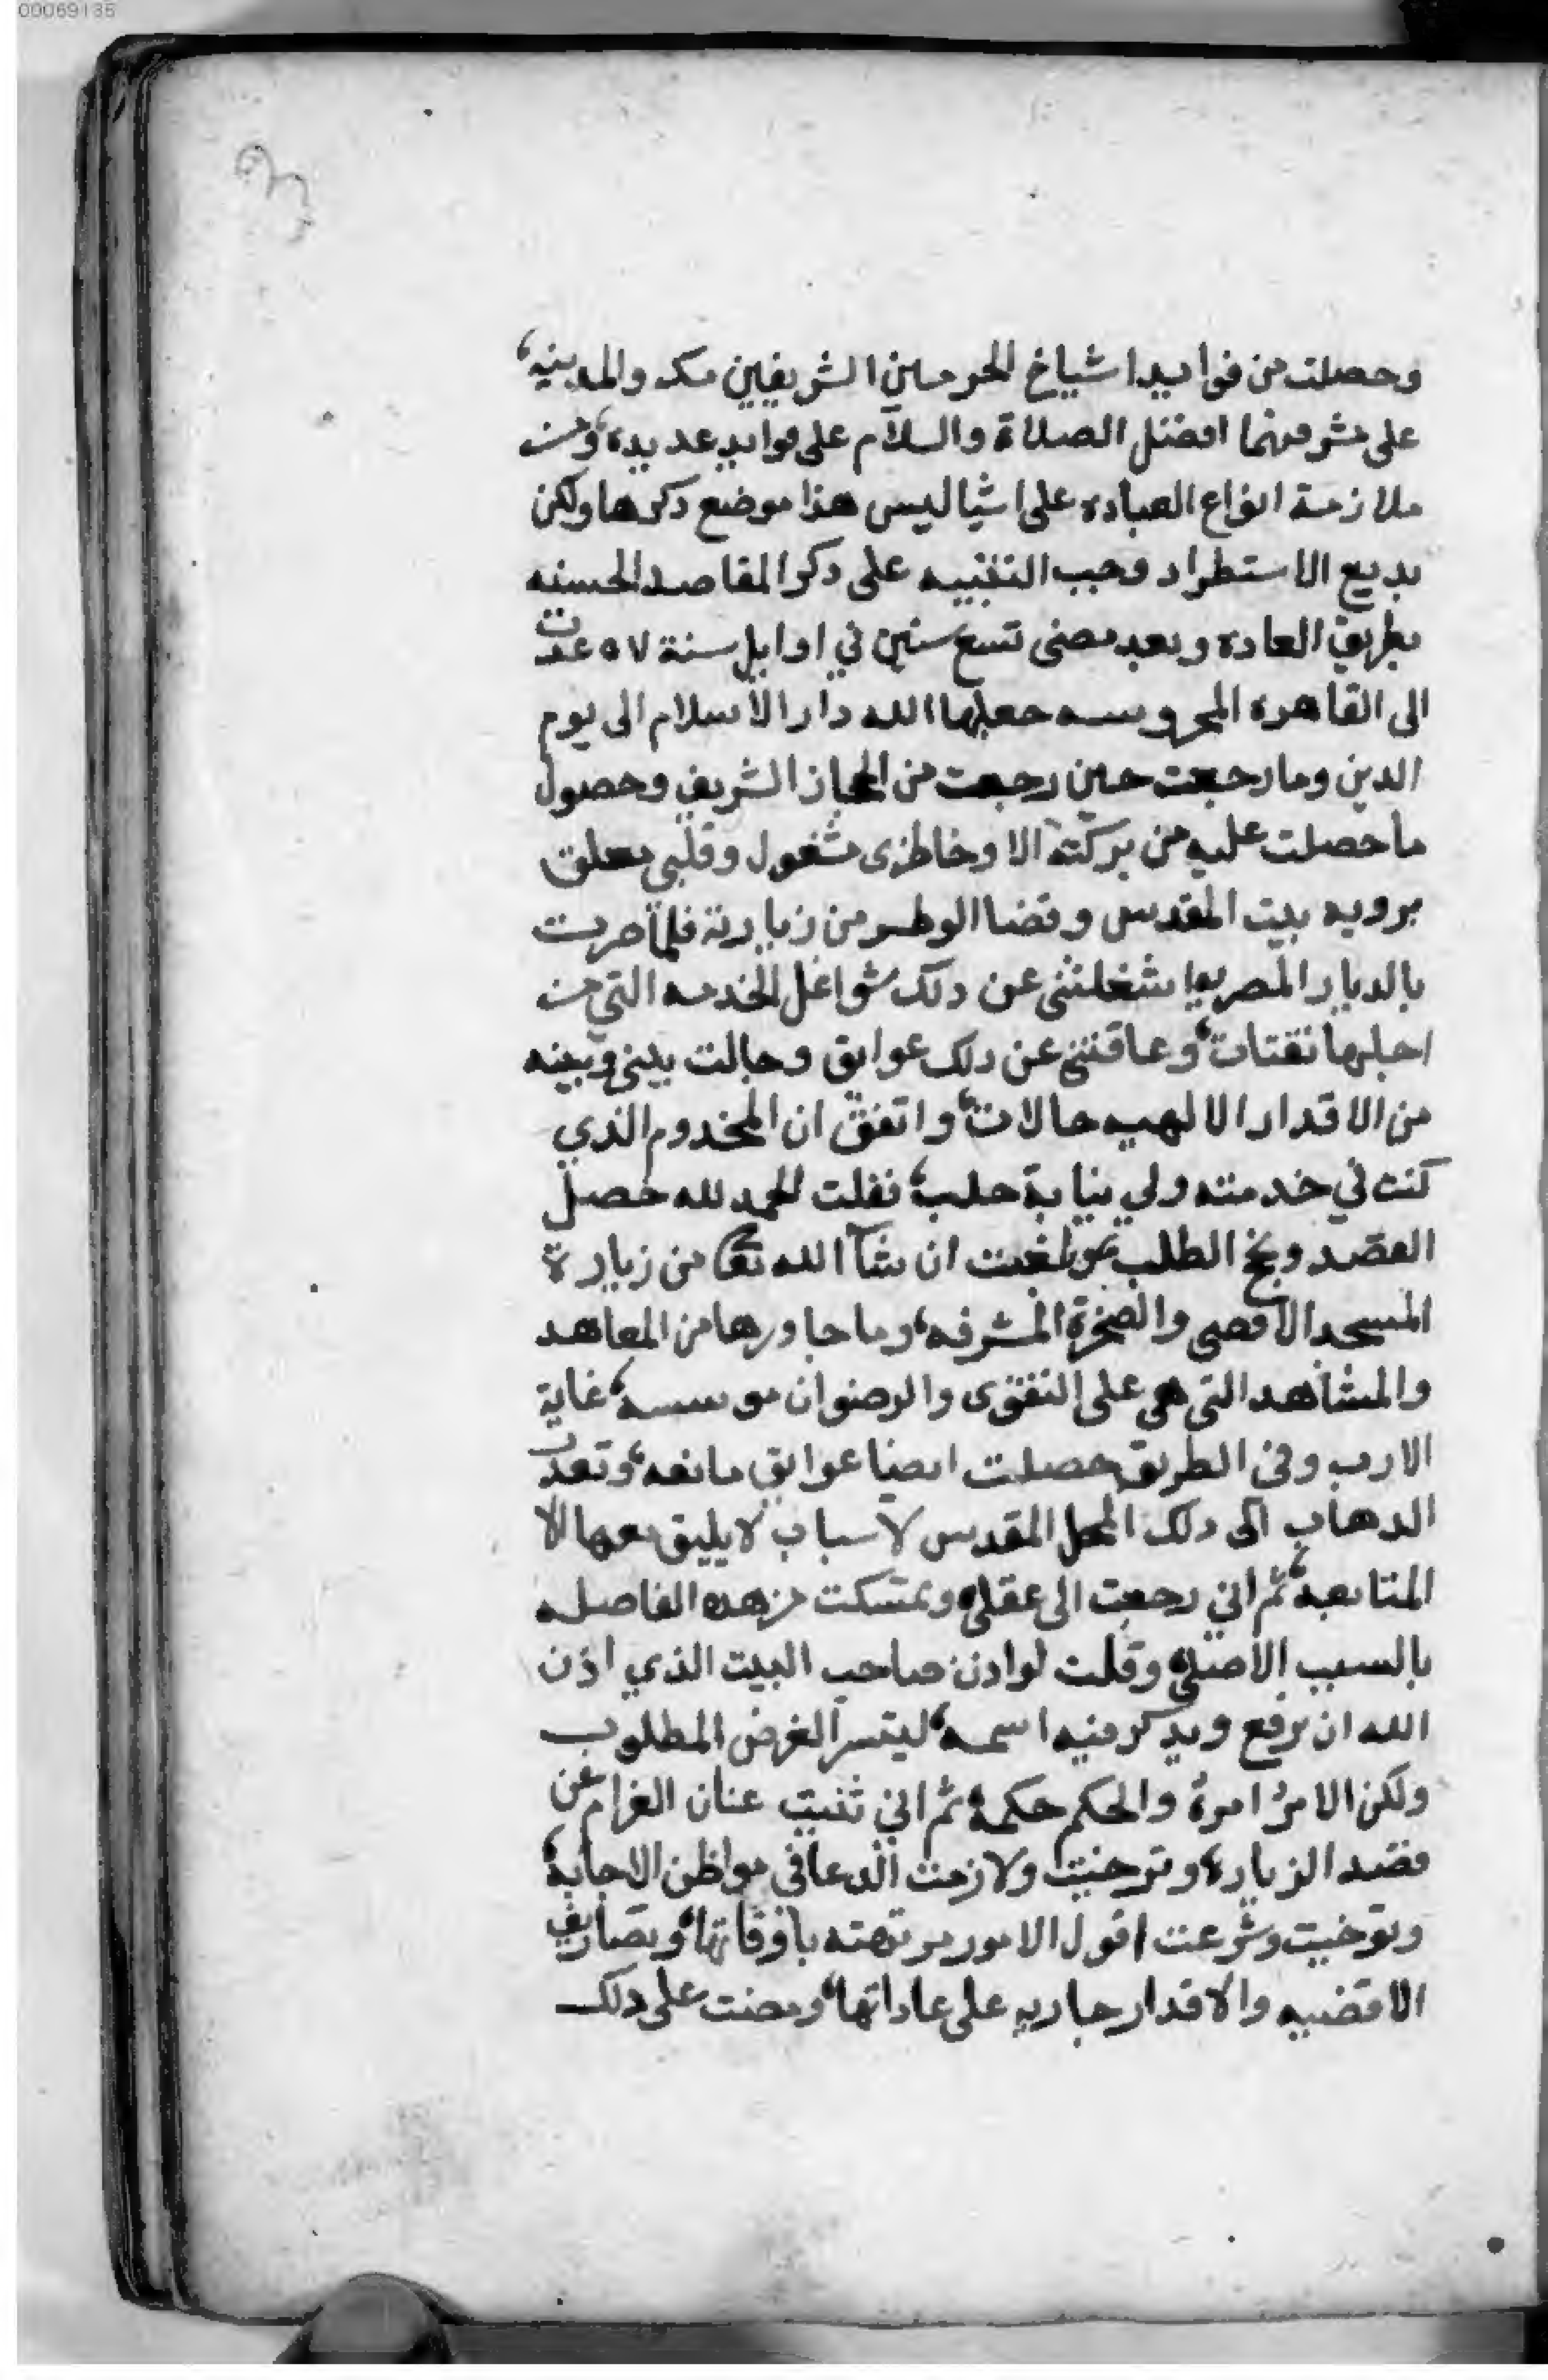 00069135
وحصلت من فوايد اشياخ الحرمين الشريفين مكه والمدينه،
على مشرفهما افضل الصلاة والسلام على فوايد عديده، ومن
ملازمة انواع العباده على اشيا ليس هذا موضع ذكرها ولكن
بديع الاستطراد وجب التنبيه على ذكر المقاصد الحسنه
بطريق العاده وبعد مضى تسع سنين في اوايل سنة ٥٧ عدت
الى القاهره المحروسه جعلها الله دار الاسلام الى يوم
الدين وما رجعت حين رجعت من الحجاز الشريف وحصول
ما حصلت عليه من بركته الا وخاطرى مشغول وقلبي معلق
برويه بيت المقدس وقضا الوطر من زيارته فلما صرت
بالديار المصريه اشغلتنى عن ذلك شواغل الخدمه التي من
اجلها نفتات، وعاقتنى عن ذلك عوايق وحالت بيني وبينه
من الاقدار الالهيه حالات، واتفق ان المخدوم الذي
كنت في خدمته ولي نيابة حلب، فقلت الحمد لله حصل
القصد ونجح الطلب، وبلغت ان شآ الله تعا من زيارة
المسجد الاقصى والصخرة المشرفه، وما جاورها من المعاهد
والمشاهد التى هى على التقوى والرضوان موسسه، غاية
الارب وفى الطريق حصلت ايضا عوايق مانعه، وتعذر
الذهاب الى ذلك المحل المقدس لاسباب لا يليق معها الا
المتابعه، ثم اني رجعت الى عقلى وتمسكت من هذه الفاصله
بالسبب الاصلى وقلت لو اذن صاحب البيت الذي اذن
الله ان يرفع ويذكر فيه اسمه، ليتسر الغرض المطلوب
ولكن الامر امره والحكم حكمه، ثم اني ثنيت عنان الغرام عن
قصد الزياره، وترجيت ولازمت الدعا فى مواطن الاجابه،
وتوخيت وشرعت اقول الامور مرتهنه باوقاتها، وتصاريف
الاقضيه والاقدار جاريه على عاداتها، ومضت على ذلك